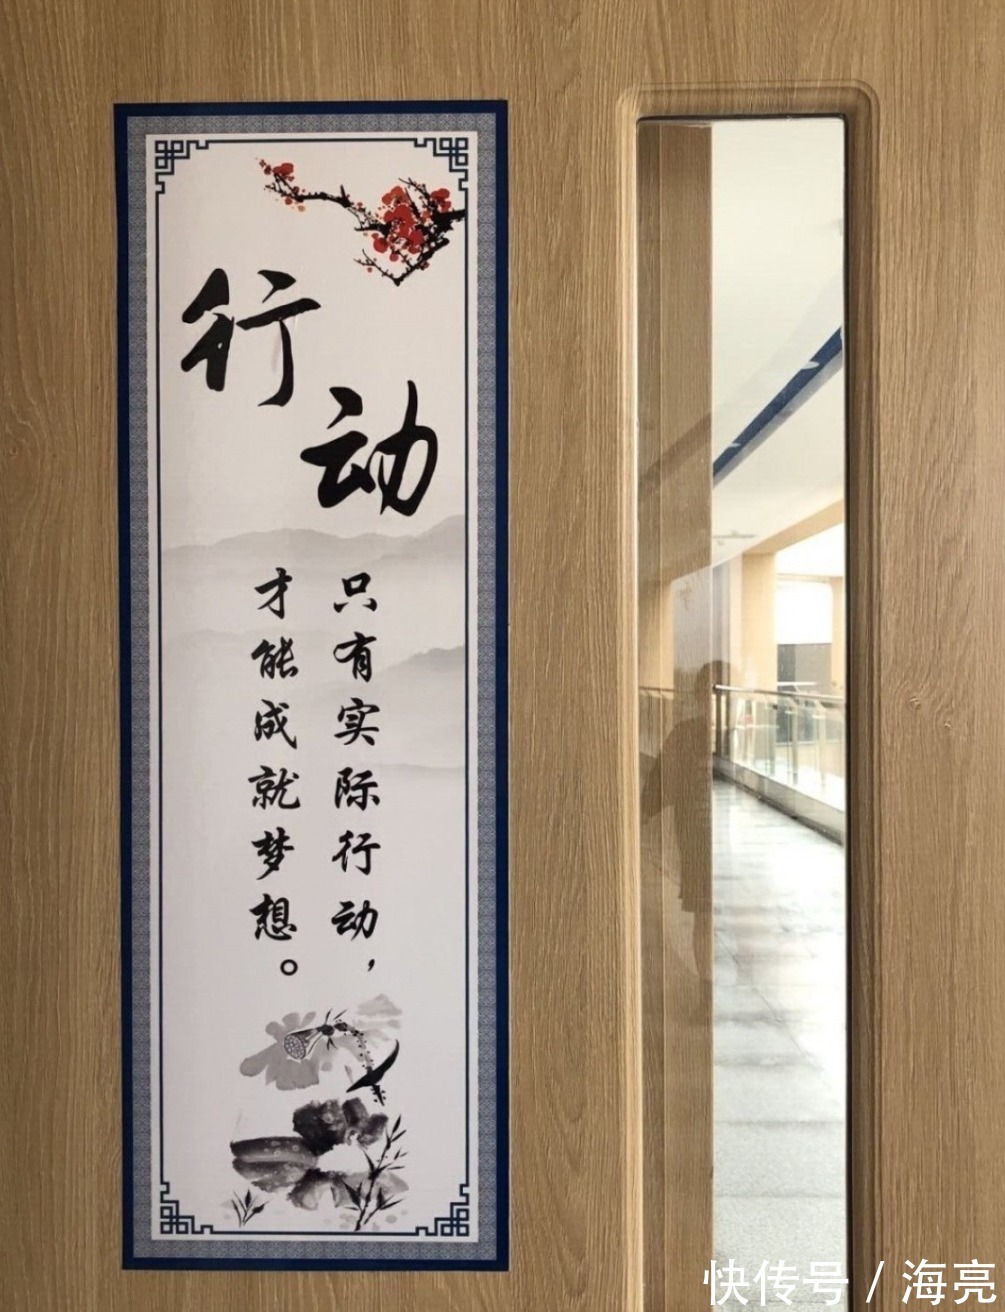 行动
只有实际行动，
才能成就梦想。
快传号 / 海亮